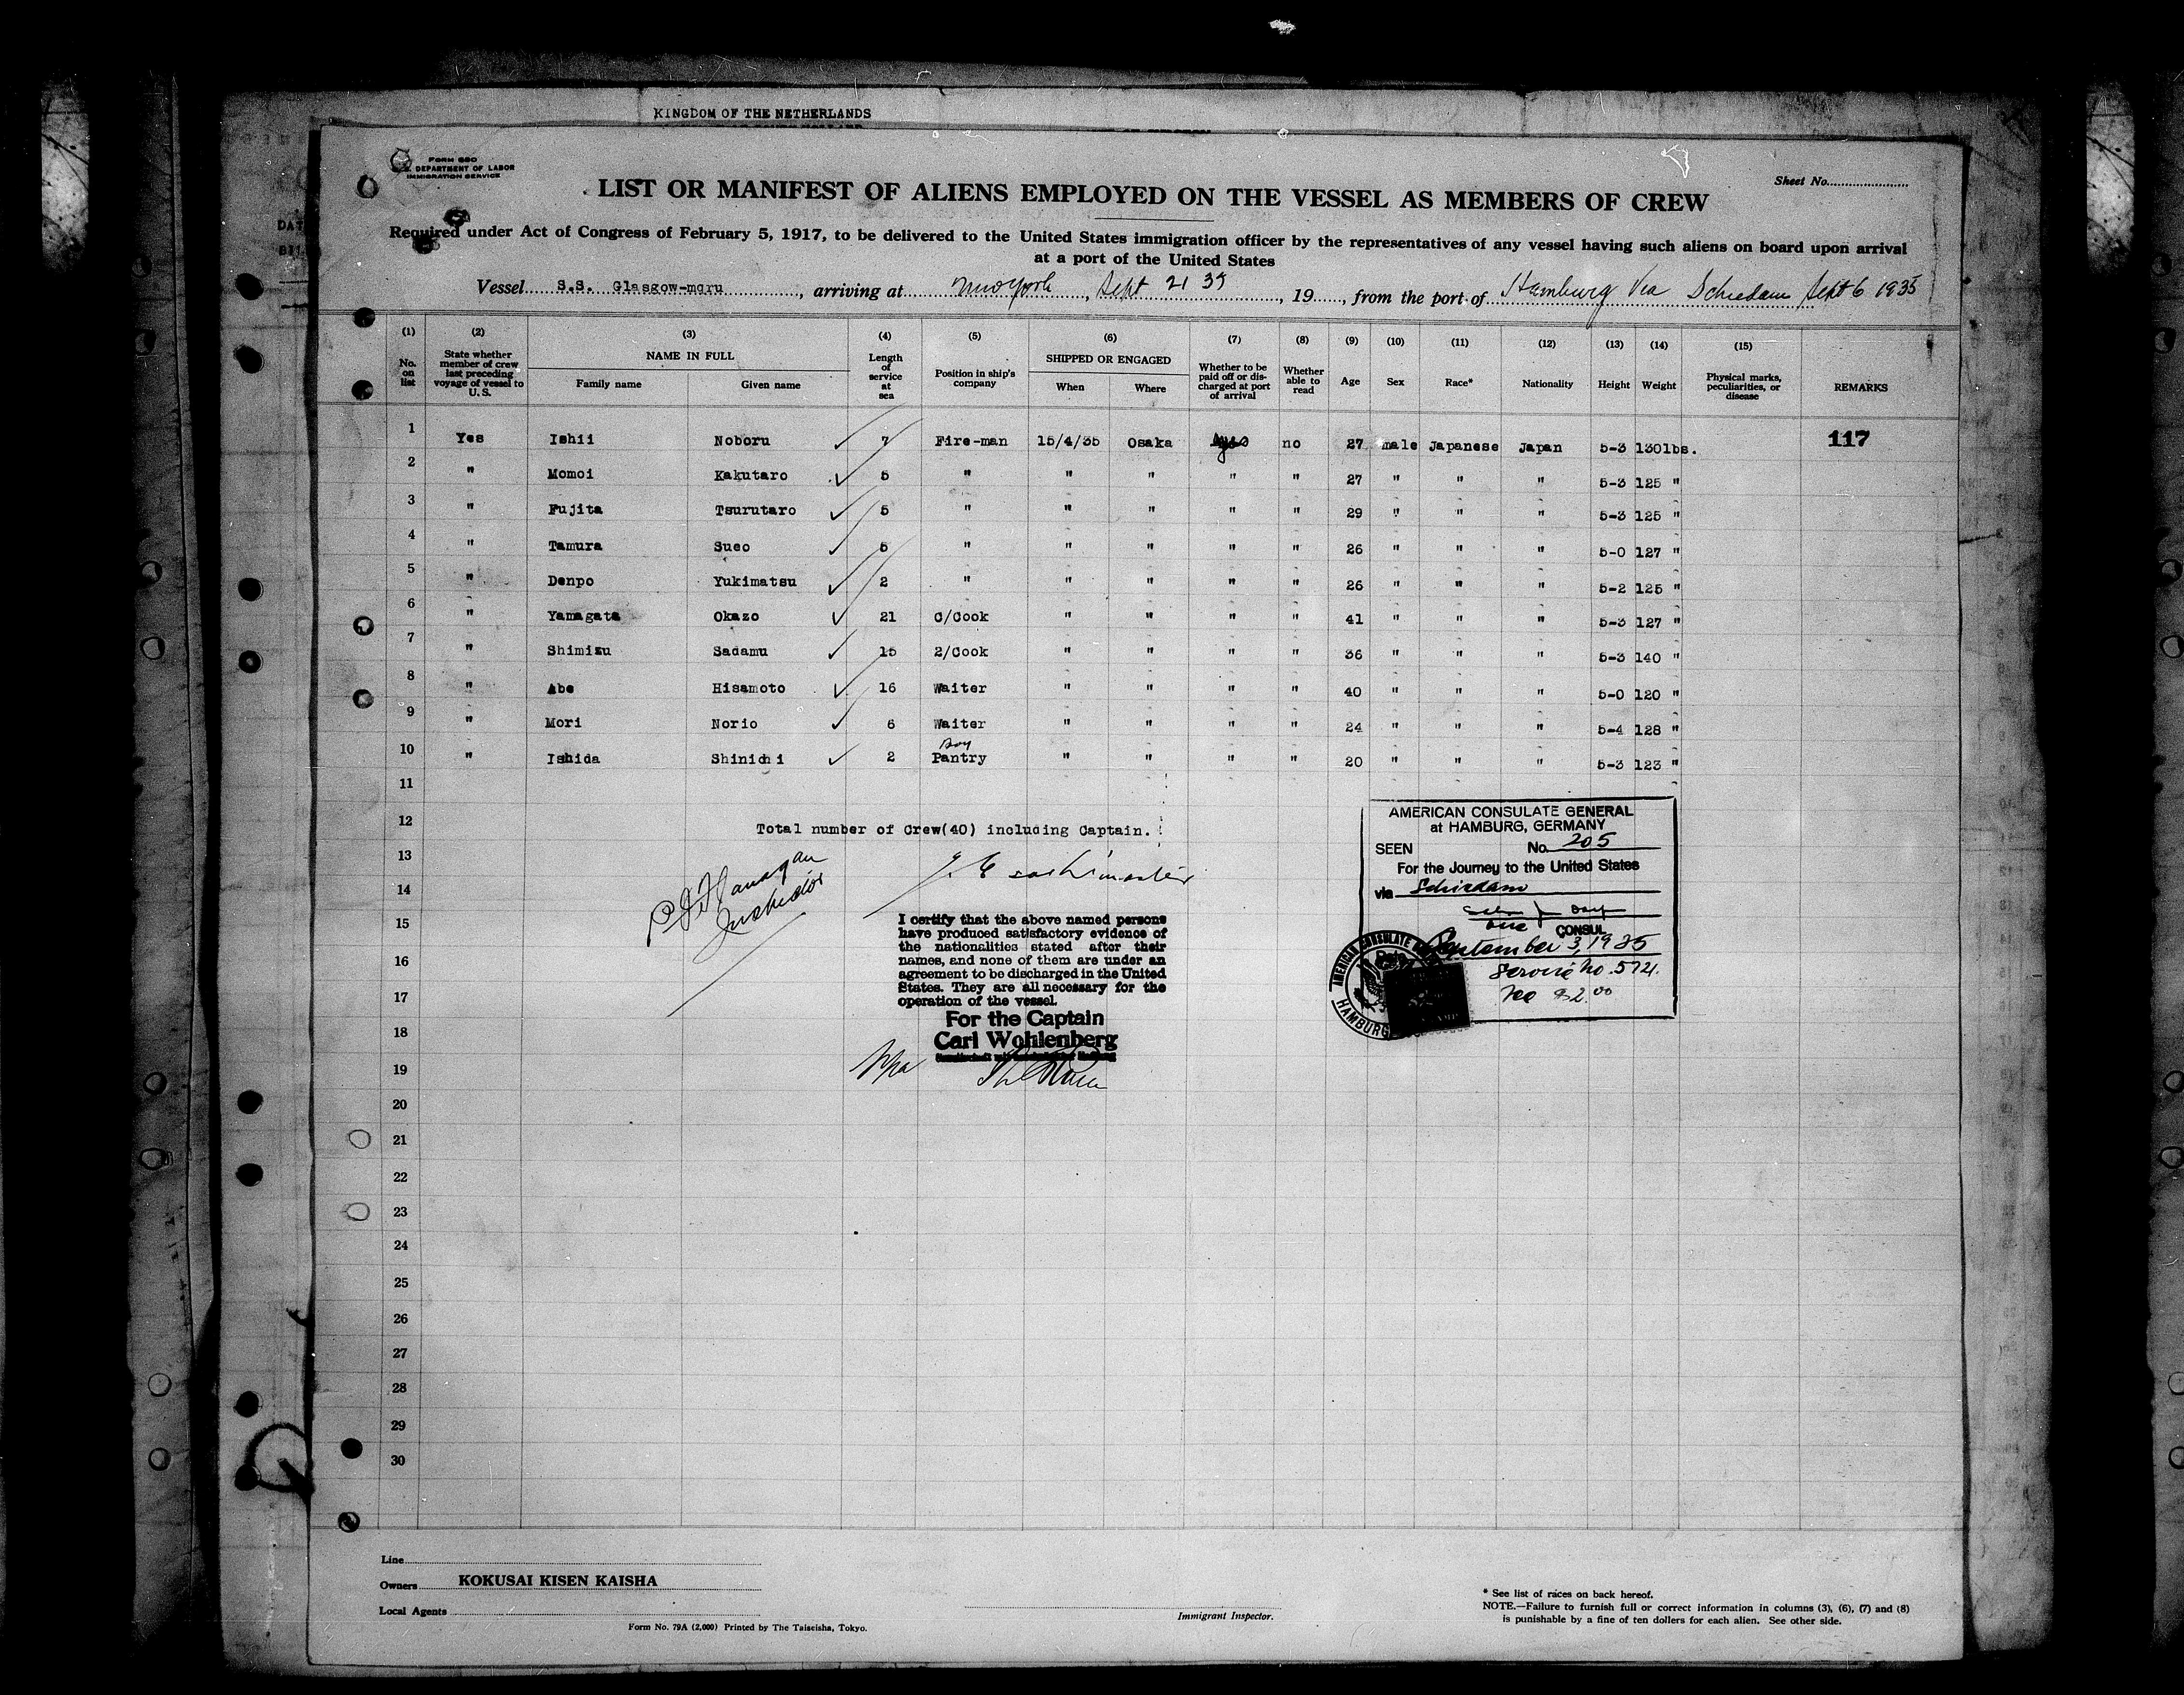 KINGDOM OF THE NETHERLANDS
FORM 680
DEPARTMENT OF LABOR
IMMIGRATION SERVICE
Sheet No.
LIST OR MANIFEST OF ALIENS EMPLOYED ON THE VESSEL AS MEMBERS OF CREW
Required under Act of Congress of February 5, 1917, to be delivered to the United States immigration officer by the representatives of any vessel having such aliens on board upon arrival
at a port of the United States
Vessel S.S. Glasgow-maru, arriving at New York, Sept 21 35, 19, from the port of Hamburg Via Schiedam Sept 6 1935
(1) (2) (3) (4) (5) (6) (7) (8) (9) (10) (11) (12) (13) (14) (15)
No. on list | State whether member of crew last preceding voyage of vessel to U.S. | NAME IN FULL Family name Given name | Length of service at sea | Position in ship's company | SHIPPED OR ENGAGED When Where | Whether to be paid off or discharged at port of arrival | Whether able to read | Age | Sex | Race* | Nationality | Height | Weight | Physical marks, peculiarities, or disease | REMARKS
1 Yes Ishii Noboru 7 Fire-man 15/4/35 Osaka no 27 male Japanese Japan 5-3 130lbs. 117
2 " Momoi Kakutaro 5 " " " " " 27 " " " 5-3 125 "
3 " Fujita Tsurutaro 5 " " " " " 29 " " " 5-3 125 "
4 " Tamura Sueo 5 " " " " " 26 " " " 5-0 127 "
5 " Denpo Yukimatsu 2 " " " " " 26 " " " 5-2 125 "
6 " Yamagata Okazo 21 C/Cook " " " " 41 " " " 5-3 127 "
7 " Shimizu Sadamu 15 2/Cook " " " " 36 " " " 5-3 140 "
8 " Abe Hisamoto 16 Waiter " " " " 40 " " " 5-0 120 "
9 " Mori Norio 6 Waiter " " " " 24 " " " 5-4 128 "
10 " Ishida Shinichi 2 Pantry Boy " " " " 20 " " " 5-3 123 "
11
12 Total number of Crew(40) including Captain.
13
14
15
16
17
18
19
20
21
22
23
24
25
26
27
28
29
30
Inspector
I certify that the above named persons
have produced satisfactory evidence of
the nationalities stated after their
names, and none of them are under an
agreement to be discharged in the United
States. They are all necessary for the
operation of the vessel.
For the Captain
Carl Wohlenberg
AMERICAN CONSULATE GENERAL
at HAMBURG, GERMANY
SEEN No. 205
For the Journey to the United States
via Schiedam
CONSUL
September 3, 1935
Service No. 5721.
Fee $2.00
AMERICAN CONSULATE
HAMBURG
Line
Owners KOKUSAI KISEN KAISHA
Local Agents
Form No. 79A (2,000) Printed by The Taiseisha, Tokyo.
Immigrant Inspector.
* See list of races on back hereof.
NOTE.—Failure to furnish full or correct information in columns (3), (6), (7) and (8)
is punishable by a fine of ten dollars for each alien. See other side.